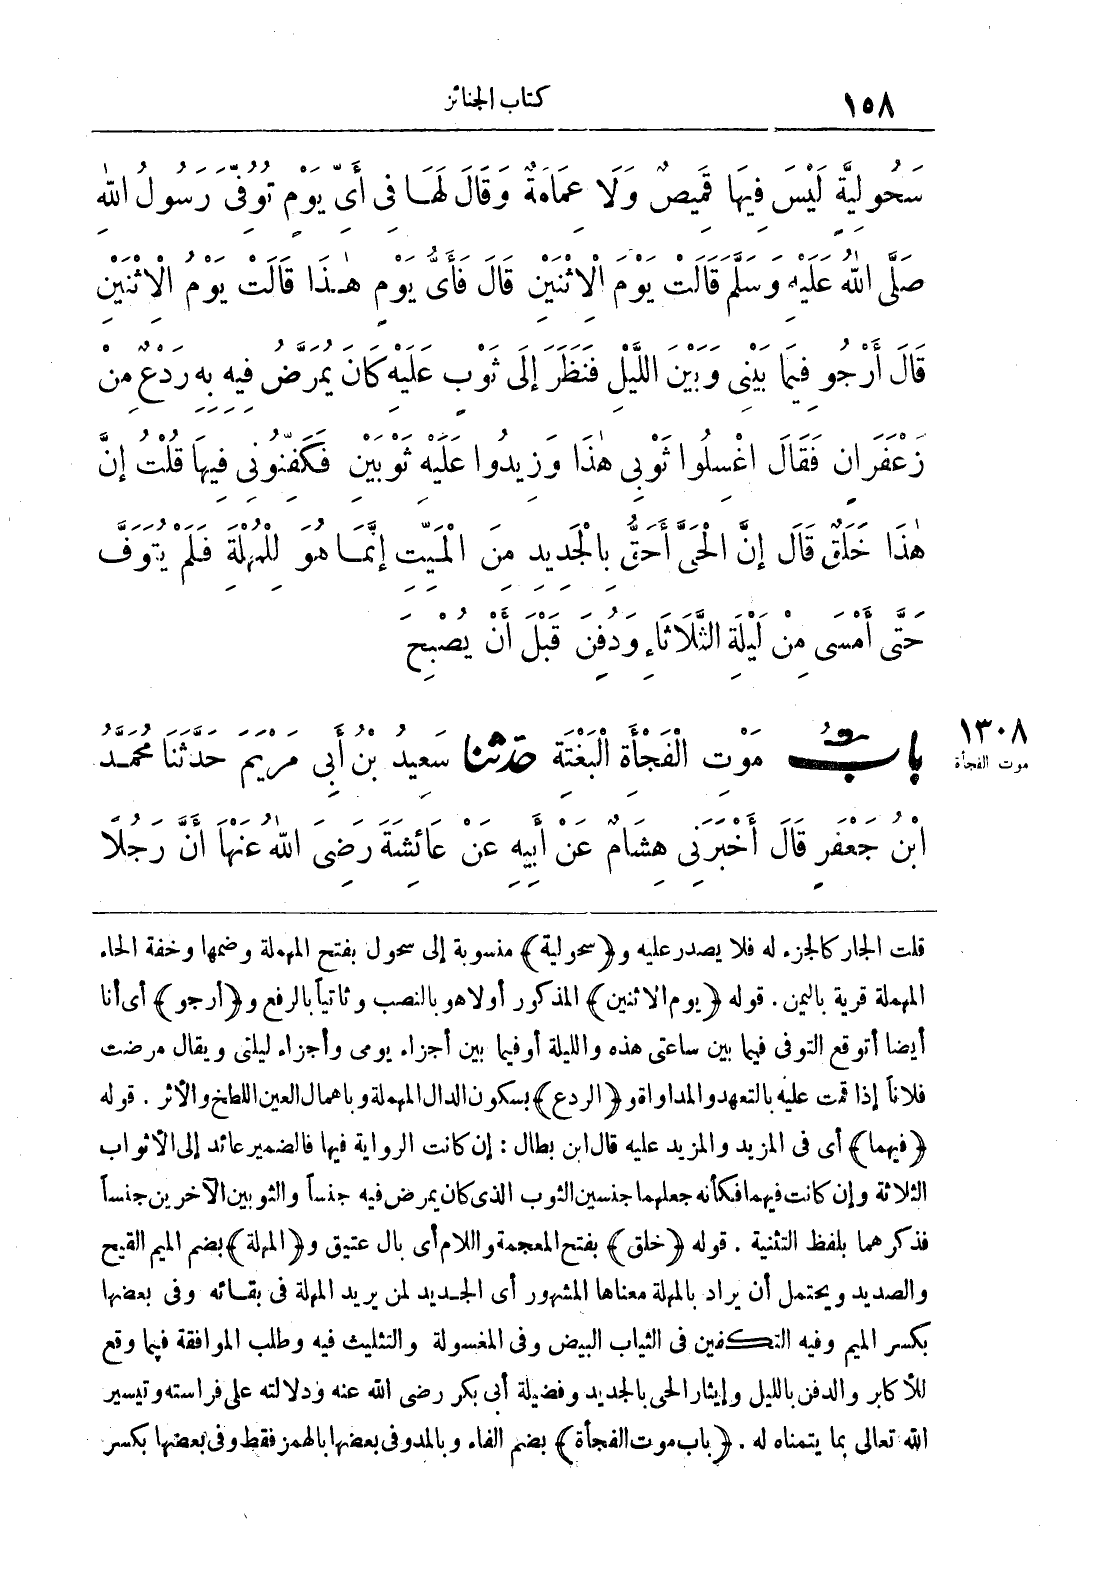 ١٥٨
كتاب الجنائز
سَحُولِيَّةٍ لَيْسَ فِيهَا قَمِيصٌ وَلَا عِمَامَةٌ وَقَالَ لَهَا فِي أَيِّ يَوْمٍ تُوُفِّيَ رَسُولُ اللهِ
صَلَّى اللهُ عَلَيْهِ وَسَلَّمَ قَالَتْ يَوْمَ الِاثْنَيْنِ قَالَ فَأَيُّ يَوْمٍ هٰذَا قَالَتْ يَوْمُ الِاثْنَيْنِ
قَالَ أَرْجُو فِيمَا بَيْنِي وَبَيْنَ اللَّيْلِ فَنَظَرَ إِلَى ثَوْبٍ عَلَيْهِ كَانَ يُمَرَّضُ فِيهِ بِهِ رَدْعٌ مِنْ
زَعْفَرَانٍ فَقَالَ اغْسِلُوا ثَوْبِي هٰذَا وَزِيدُوا عَلَيْهِ ثَوْبَيْنِ فَكَفِّنُونِي فِيهَا قُلْتُ إِنَّ
هٰذَا خَلَقٌ قَالَ إِنَّ الْحَيَّ أَحَقُّ بِالْجَدِيدِ مِنَ الْمَيِّتِ إِنَّمَا هُوَ لِلْمُهْلَةِ فَلَمْ يُتَوَفَّ
حَتَّى أَمْسَى مِنْ لَيْلَةِ الثَّلَاثَاءِ وَدُفِنَ قَبْلَ أَنْ يُصْبِحَ
١٣٠٨
موت الفجأة
بَابُ مَوْتِ الْفَجْأَةِ الْبَغْتَةِ حدثنا سَعِيدُ بْنُ أَبِي مَرْيَمَ حَدَّثَنَا مُحَمَّدُ
ابْنُ جَعْفَرٍ قَالَ أَخْبَرَنِي هِشَامٌ عَنْ أَبِيهِ عَنْ عَائِشَةَ رَضِيَ اللهُ عَنْهَا أَنَّ رَجُلًا
قلت الجار كالجزء له فلا يصدر عليه و ﴿سحولية﴾ منسوبة إلى سحول بفتح المهملة وضمها وخفة الحاء
المهملة قرية باليمن. قوله ﴿يوم الاثنين﴾ المذكور أولا هو بالنصب وثانياً بالرفع و ﴿أرجو﴾ أى أنا
أيضا أتوقع التوفى فيما بين ساعتى هذه والليلة أو فيما بين أجزاء يومى وأجزاء ليلتى ويقال مرضت
فلاناً إذا قمت عليه بالتعهد والمداواة و ﴿الردع﴾ بسكون الدال المهملة وباهمال العين اللطخ والأثر. قوله
﴿فيهما﴾ أى فى المزيد والمزيد عليه قال ابن بطال : إن كانت الرواية فيها فالضمير عائد إلى الأثواب
الثلاثة وإن كانت فيهما فكأنه جعلهما جنسين الثوب الذى كان يمرض فيه جنساً والثوبين الآخرين جنساً
فذكرهما بلفظ التثنية. قوله ﴿خلق﴾ بفتح المعجمة واللام أى بال عتيق و ﴿المهلة﴾ بضم الميم القيح
والصديد ويحتمل أن يراد بالمهلة معناها المشهور أى الجديد لمن يريد المهلة فى بقائه وفى بعضها
بكسر الميم وفيه التكفين فى الثياب البيض وفى المغسولة والتثليث فيه وطلب الموافقة فيما وقع
للأكابر والدفن بالليل وإيثار الحى بالجديد وفضيلة أبى بكر رضى الله عنه ودلالته على فراسته وتيسير
الله تعالى بما يتمناه له. ﴿باب موت الفجأة﴾ بضم الفاء وبالمد وفى بعضها بالهمز فقط وفى بعضها بكسر